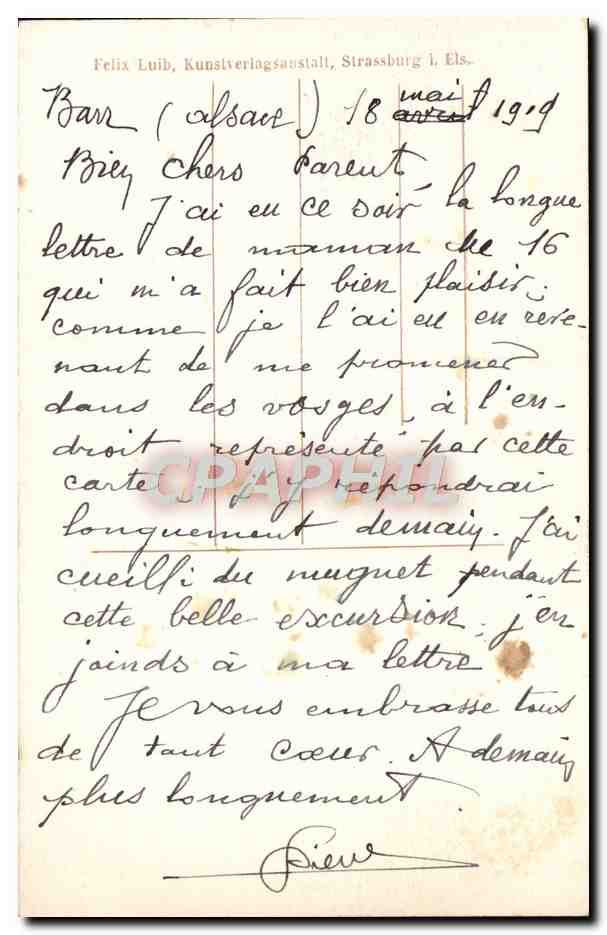 Felix Luib, Kunstverlagsanstalt, Strassburg i. Els.
Barr (Alsace) 18 mai 1919
Bien chers Parents
J'ai eu ce soir la longue
lettre de maman du 16
qui m'a fait bien plaisir,
comme je l'ai eu en reve-
nant de me promener
dans les vosges, à l'en-
droit représenté par cette
carte, j'y répondrai
longuement demain. J'ai
cueilli du muguet pendant
cette belle excursion, j'en
joinds à ma lettre
Je vous embrasse tous
de tout cœur. A demain
plus longuement.
Pierre
CPARAMA CPAPHIL